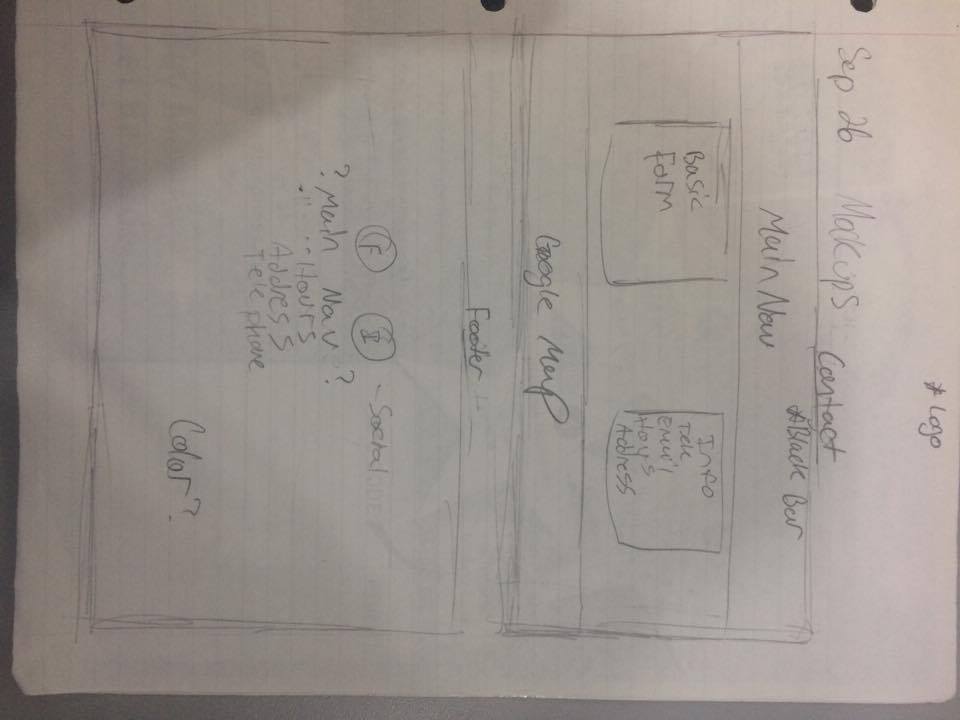 * Logo
Sep 26 Makups Contact
* Black Bar
Main Nav
Basic
Form
Info
Tele
Email
Hours
Address
Google Map
Footer
F I - Social
? Main Nav ?
Hours
Address
Telephone
Color?